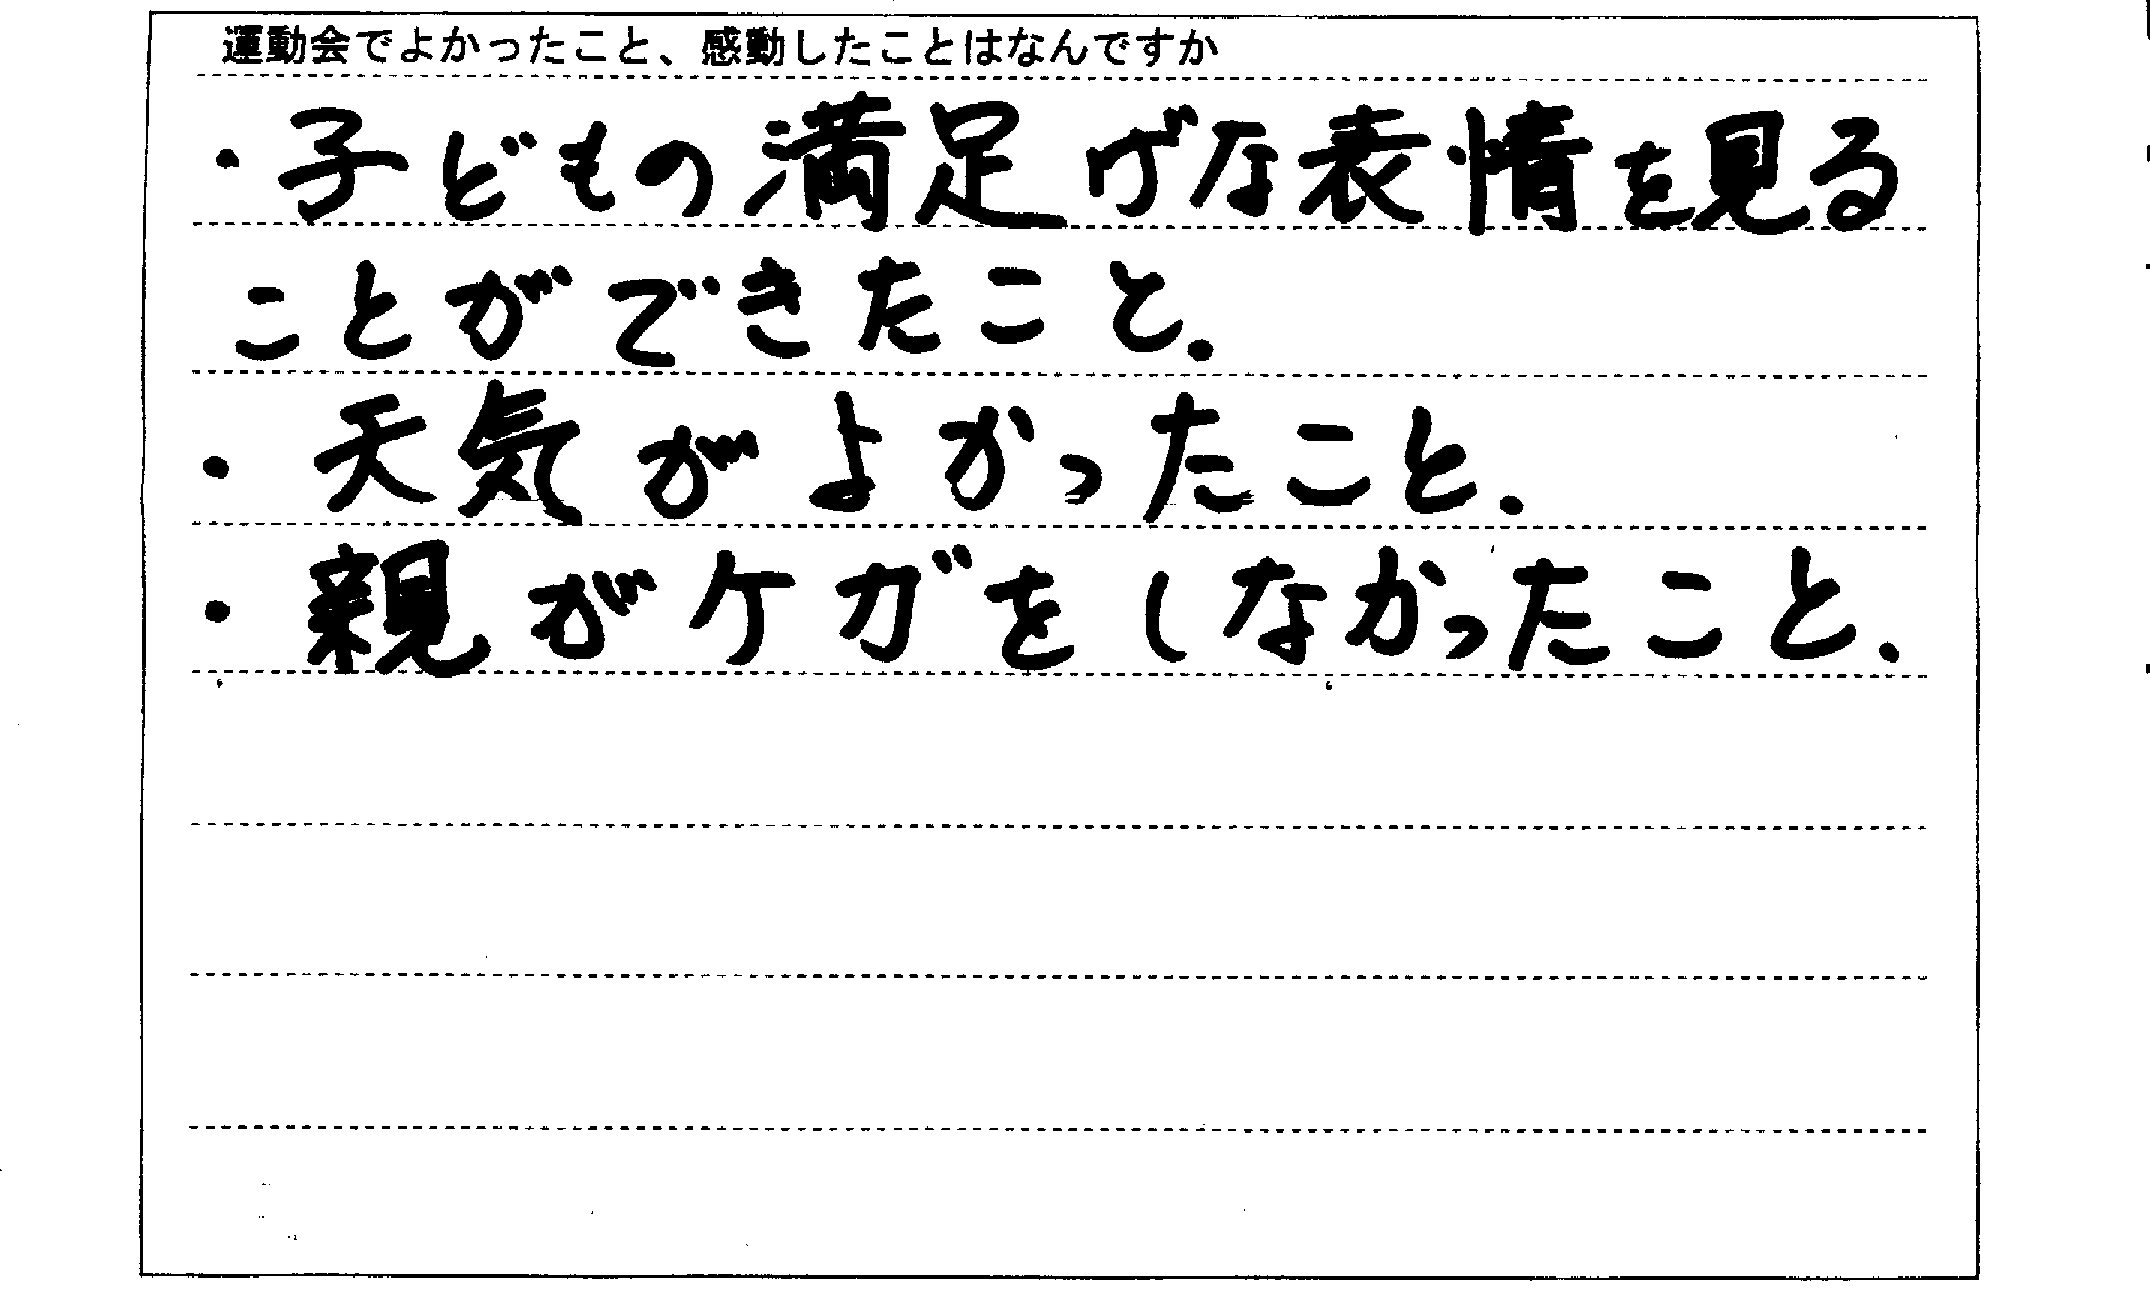 運動会でよかったこと、感動したことはなんですか
・子どもの満足げな表情を見る
ことができたこと.
・天気がよかったこと.
・親がケガをしなかったこと.